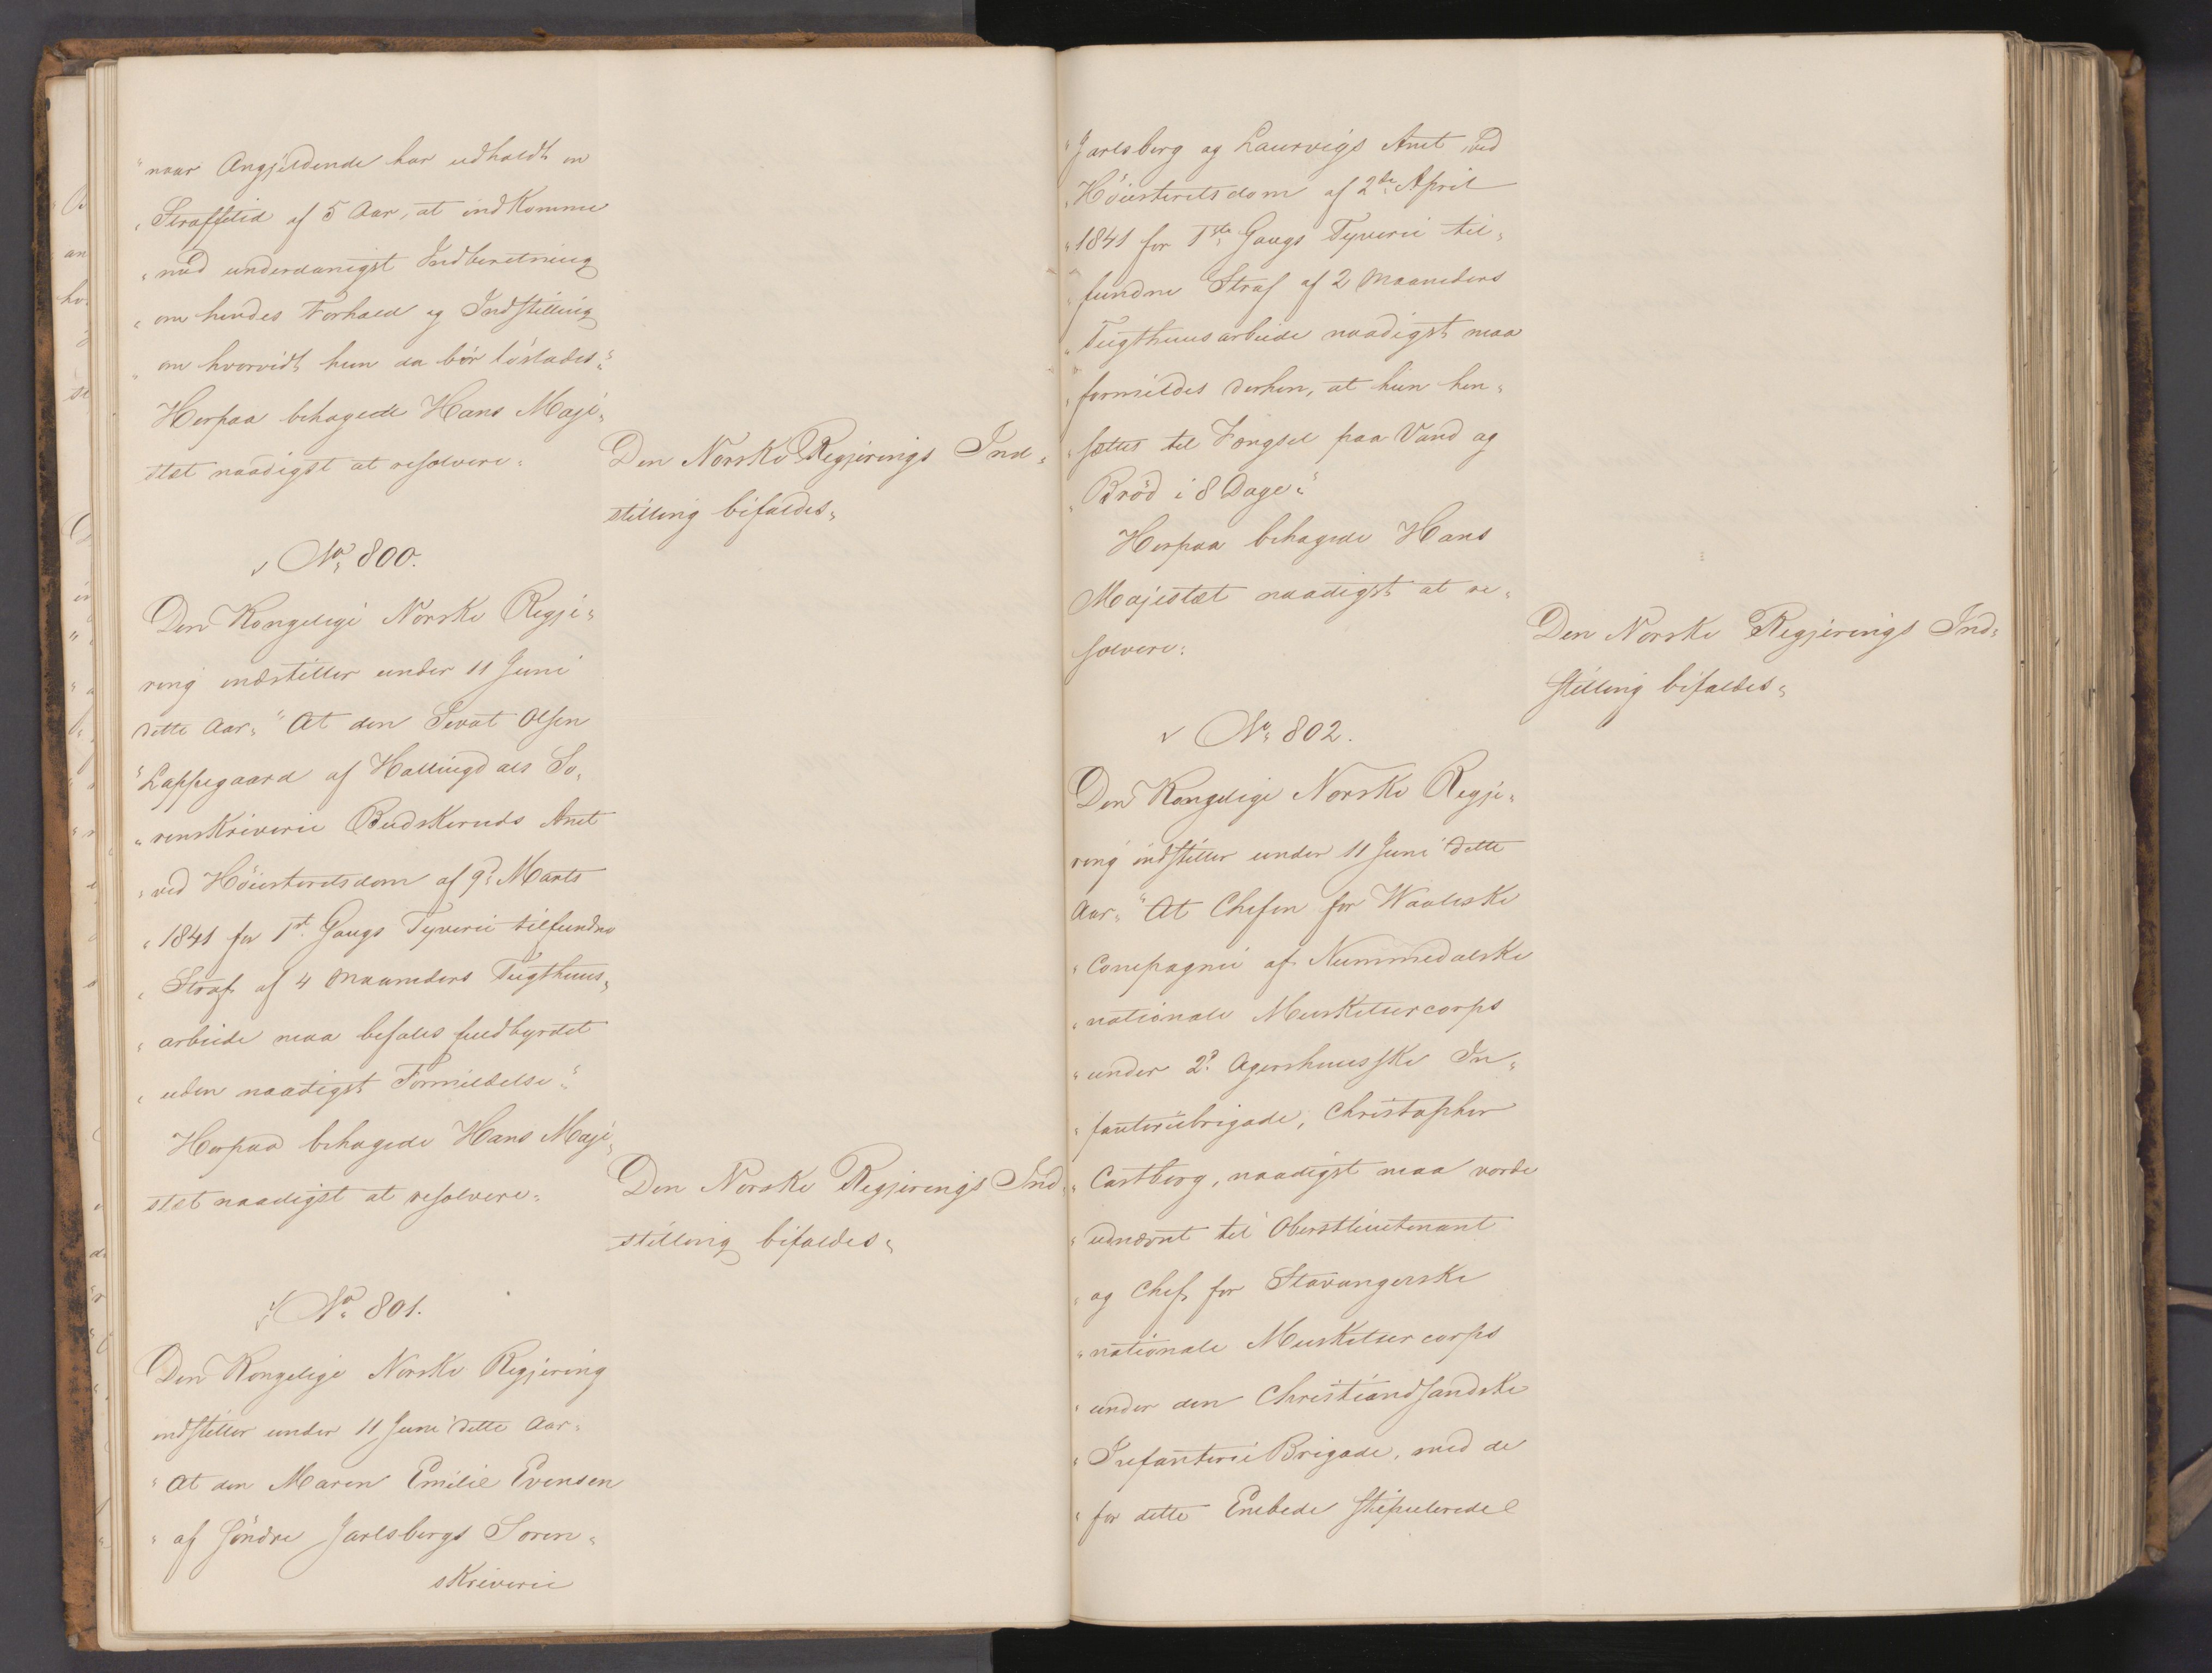 "naar Angjeldende har udholdt en
"Straffetid af 5 Aar, at indkomme
"med underdanigst Indberetning
"om hendes Forhold og Indstilling
"om hvorvidt hun da bør løslades."
Herpaa behagede Hans Maje-
stæt naadigst at resolvere:
Den Norske Regjerings Ind-
stilling bifaldes.
No 800.
Den Kongelige Norske Regje-
ring indstiller under 11 Juni
dette Aar: "At den Sevat Olsen
"Lappegaard af Hallingdals So-
"renskriverie Budskeruds Amt
"ved Höiesteretsdom af 9d Marts
"1841 for 1st Gangs Tyverie tilfundne
"Straf af 4 Maaneders Tugthuus-
"arbeide maa befales fuldbyrdet
"uden naadigst Formildelse."
Herpaa behagede Hans Maje-
stæt naadigst at resolvere:
Den Norske Regjerings Ind-
stilling bifaldes.
No 801.
Den Kongelige Norske Regjering
indstiller under 11 Juni dette Aar:
"At den Maren Emilie Evensen
"af söndre Jarlsbergs Soren-
skriverie
"Jarlsberg og Laurvigs Amt, ved
"Höiesteretsdom af 2de April
"1841 for 1ste Gangs Tyverie til-
"fundne Straf af 2 Maaneders
"Tugthuusarbeide naadigst maa
"formildes derhen, at hun hen-
"sættes til Fængsel paa Vand og
"Bröd i 8 Dage."
Herpaa behagede Hans
Majestæt naadigst at re-
solvere:
Den Norske Regjerings Ind-
stilling bifaldes.
No 802.
Den Kongelige Norske Regje-
ring indstiller under 11 Juni dette
Aar: "At Chefen for Waaleske
"Compagnie af Nummedalske
"nationale Musketeercorps
"under 2d Agershuusske In-
"fanteriebrigade, Christopher
"Castberg, naadigst maa vorde
"udnævnt til Oberstlieutenant
"og Chef for Stavangerske
"nationale Musketeercorps
"under den Christiandsandske
"Infanterie Brigade, med de
"for dette Embede stipulerede